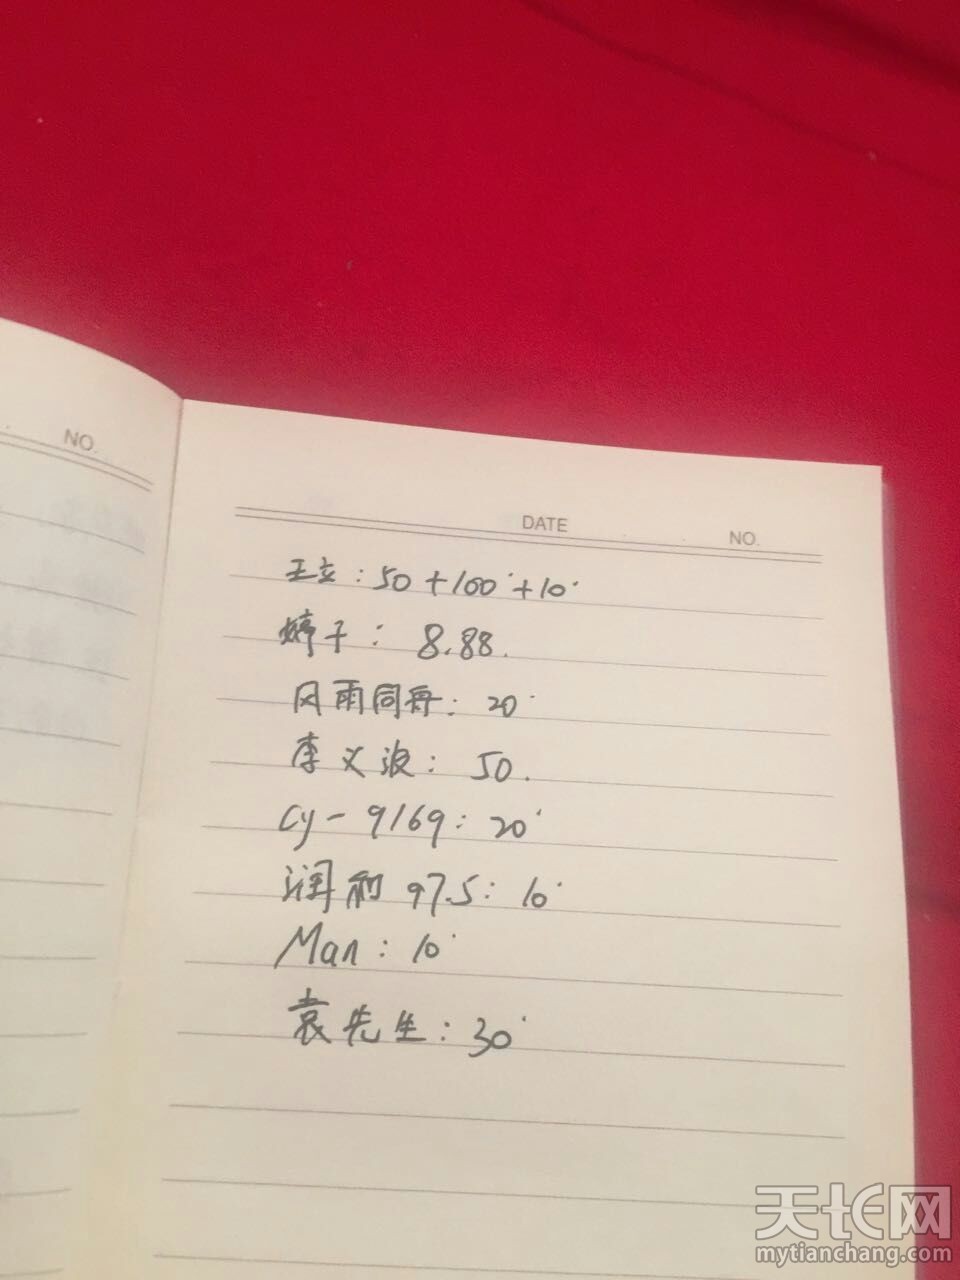 NO.
DATE
NO.
王立：50+100+10
婷子：8.88.
风雨同舟：20
李义波：50.
Cy-9169：20
润和 97.5：10
Man：10
袁先生：30
天长网
mytianchang.com